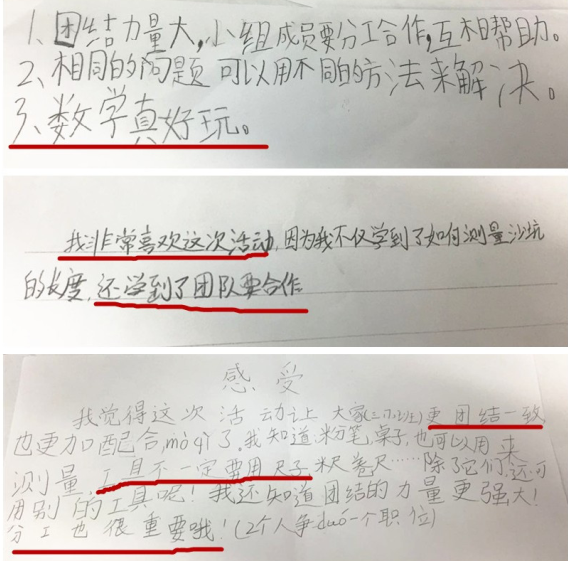 1、团结力量大,小组成员要分工合作,互相帮助。
2、相同的问题可以用不同的方法来解决。
3、数学真好玩。
我非常喜欢这次活动,因为我不仅学到了如何测量沙坑
的长度,还学到了团队要合作
感受
我觉得这次活动让大家(二(1)班)更团结一致,
也更加配合,mògì了。我知道,粉笔,桌子,也可以用来
测量,工具不一定要用尺子米尺卷尺……除了它们,还可
用别的工具呢!我还知道团结的力量更强大!
分工也很重要哦!(2个人争duó一个职位)